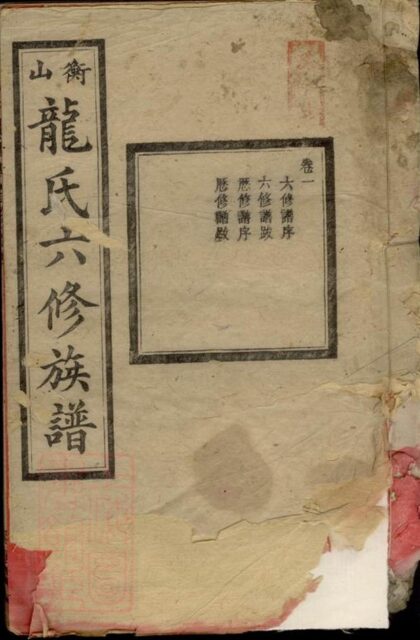 衡山
龍氏六修族譜
卷一
六修譜序
六修譜跋
歷修譜序
歷修譜跋